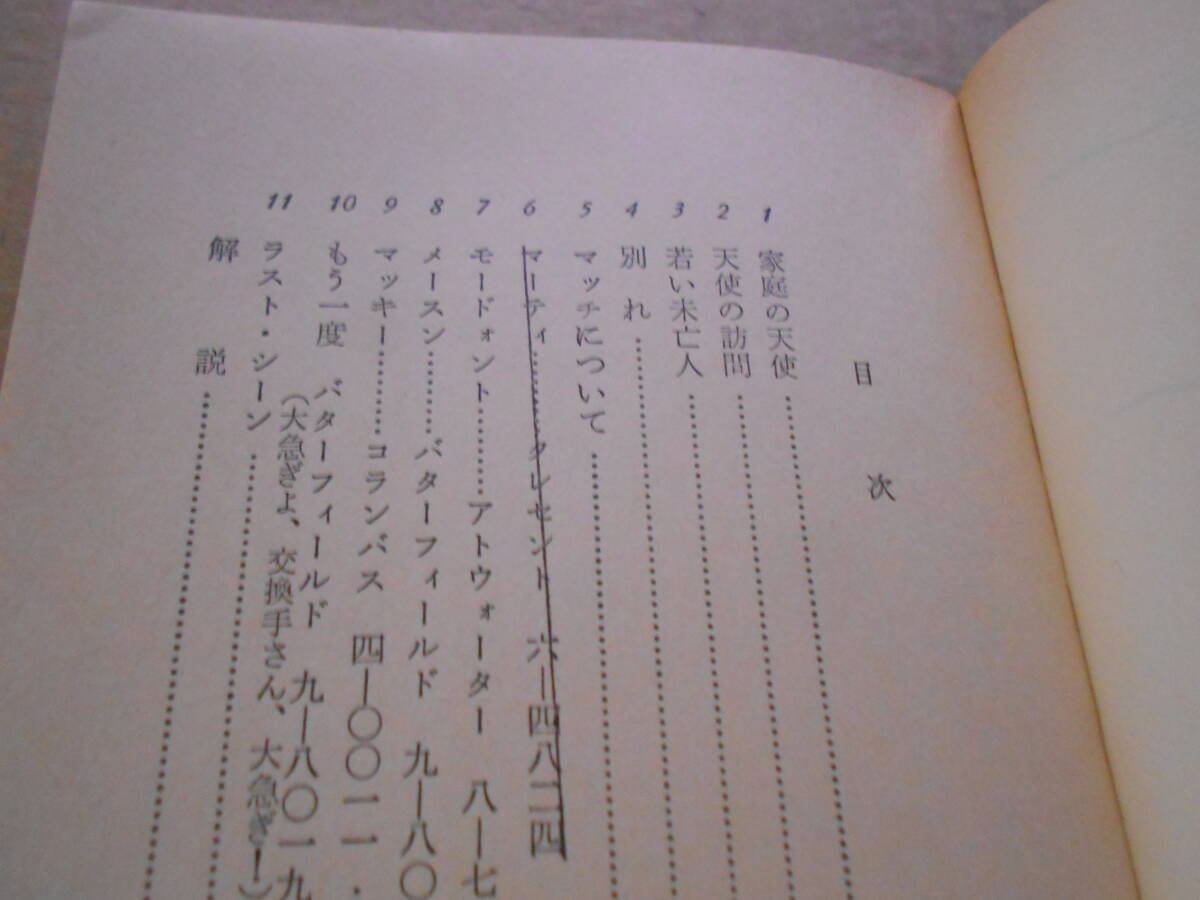 目次
1 家庭の天使………
2 天使の訪問………
3 若い未亡人………
4 別れ………
5 マッチについて………
6 マーティ………クレセント 六―四八二四
7 モードォント………アトウォーター 八―七
8 メースン………バターフィールド 九―八〇
9 マッキー………コランバス 四―〇〇一一
10 もう一度 バターフィールド 九―八〇一九
(大急ぎよ、交換手さん、大急ぎ!)
11 ラスト・シーン………
解説………